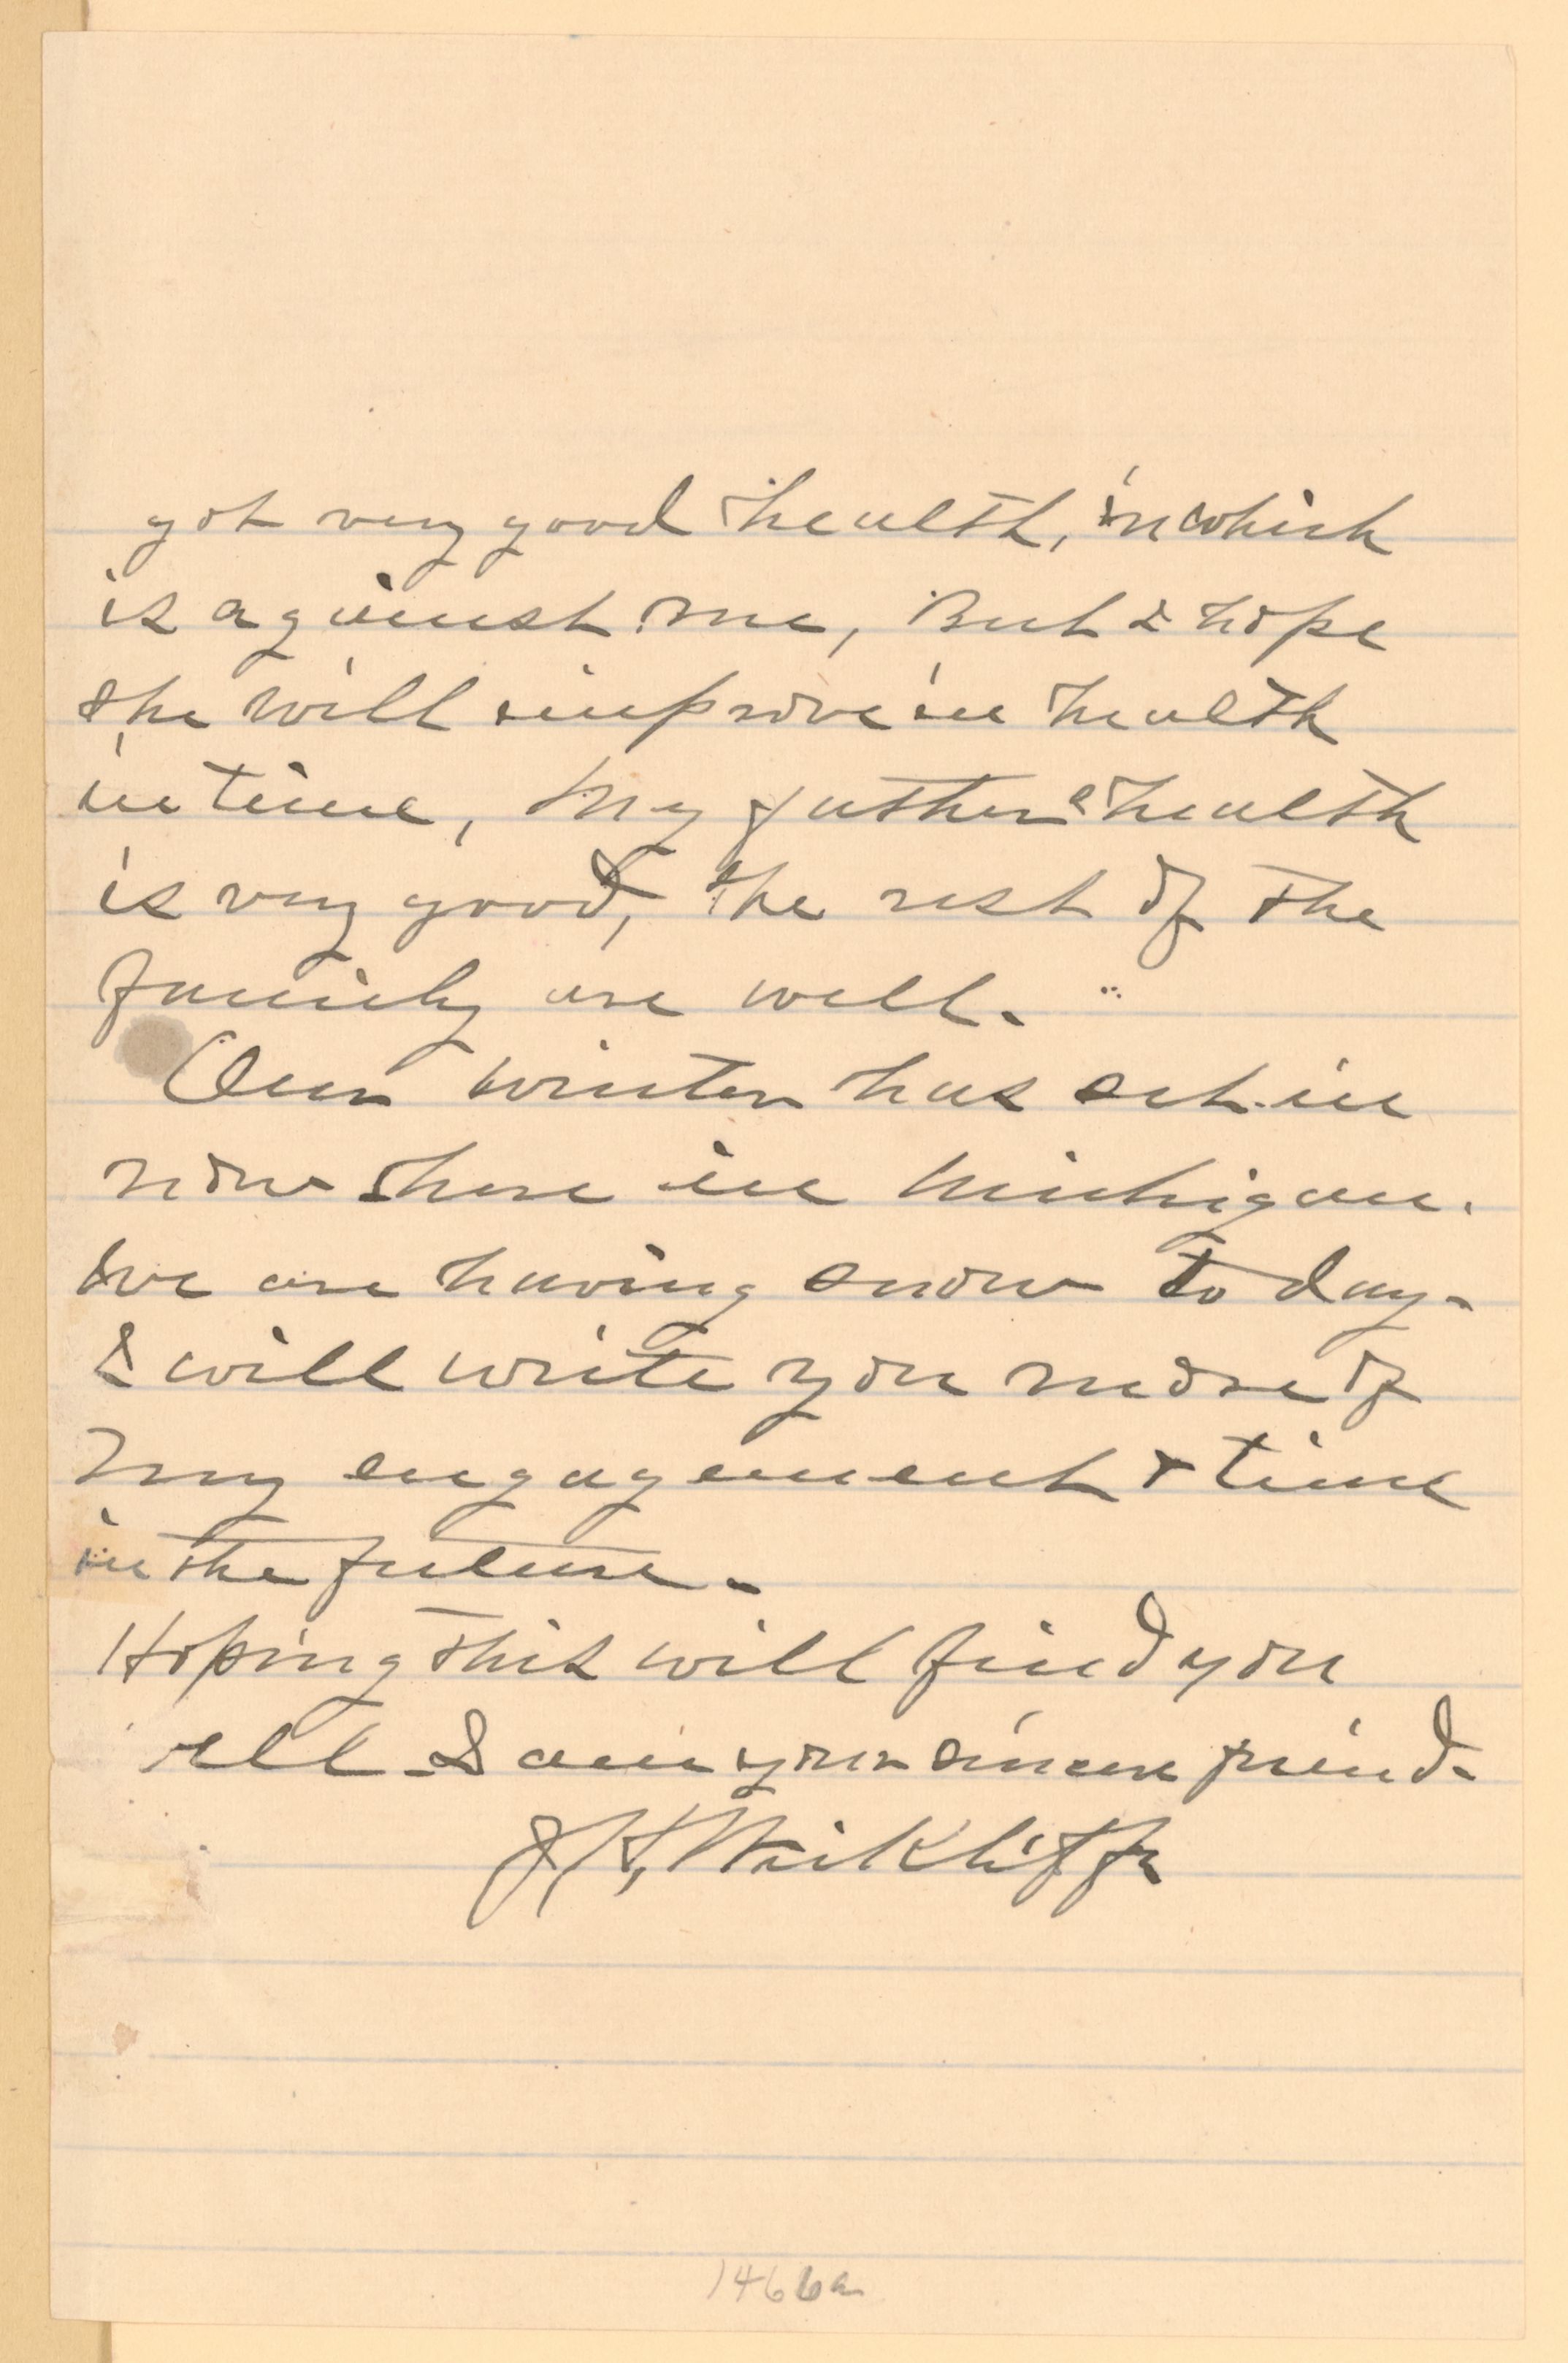 got very good health, in which
is against me, But I hope
she will improve in health
in time, My fathers health
is very good, the rest of the
family are well.
Our winter has set in
now here in Michigan.
We are having snow to day.
I will write you more of
my engagement & time
in the future.
Hoping this will find you
all I am your sincere friend.
1466a